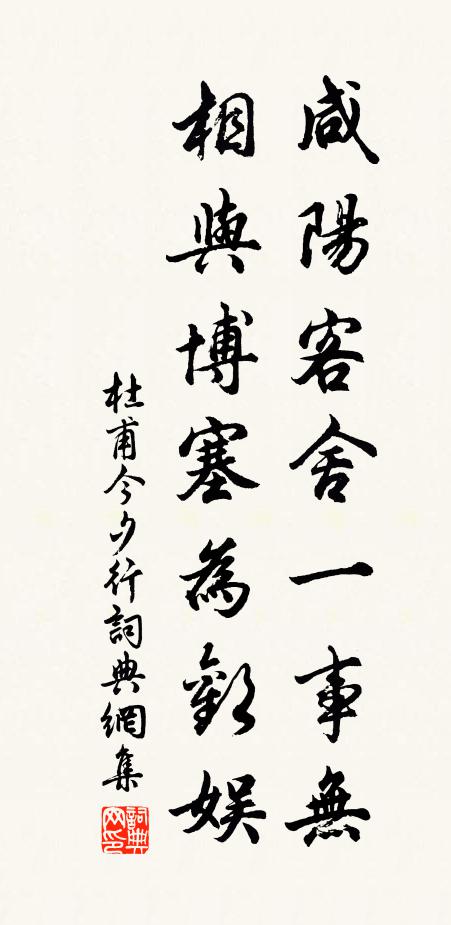 咸陽客舍一事無
相與博塞為歡娛
杜甫今夕行詞典網集
詞典網印